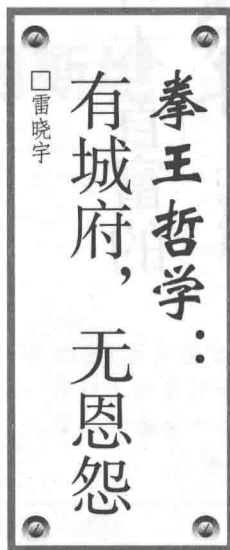 拳王哲学：
有城府，无恩怨
□雷晓宇